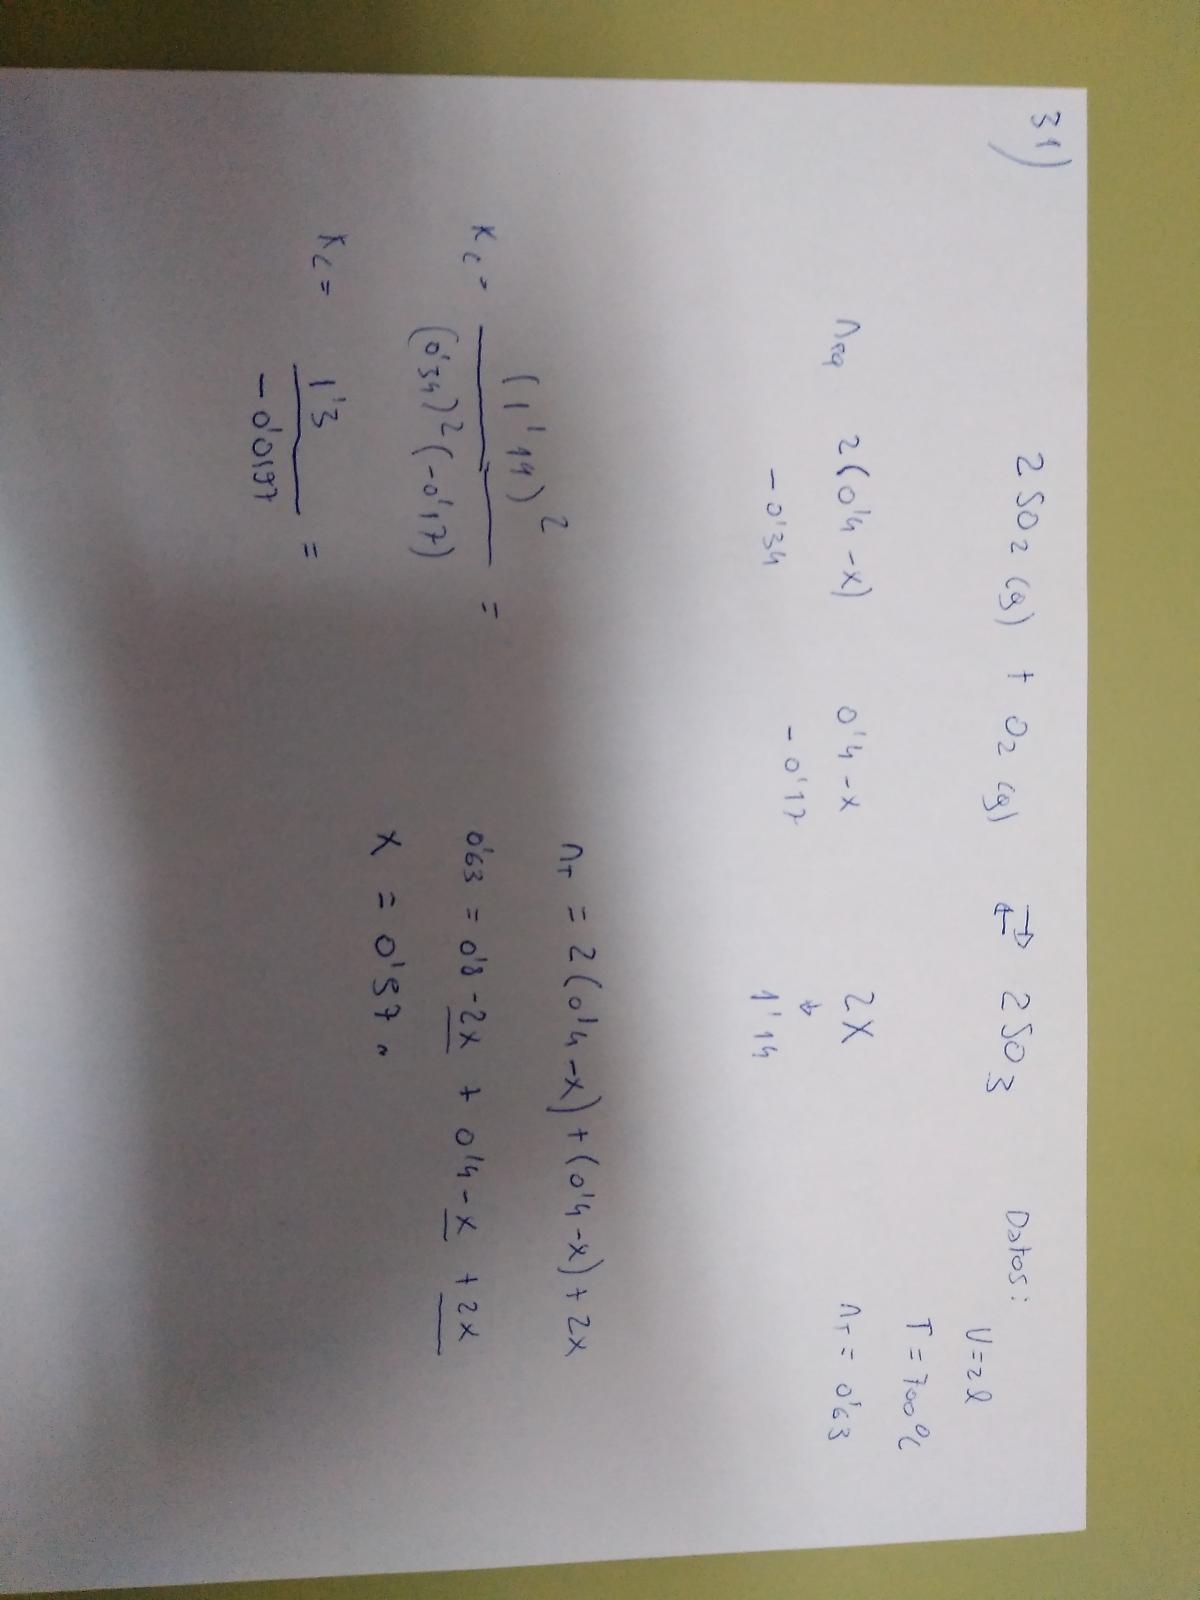 31)
2 SO2 (g) + O2 (g) ⇄ 2 SO3
Datos:
V=2l
T=700ºC
nT = 0'63
neq 2(0'4 -x) 0'4 -x 2x
↓
-0'34 -0'17 1'14
nT = 2(0'4 -x) + (0'4 -x) + 2x
0'63 = 0'8 -2x + 0'4 -x + 2x
x = 0'57 "
Kc = (1'14)² / (0'34)² (-0'17) =
Kc = 1'3 / -0'0197 =